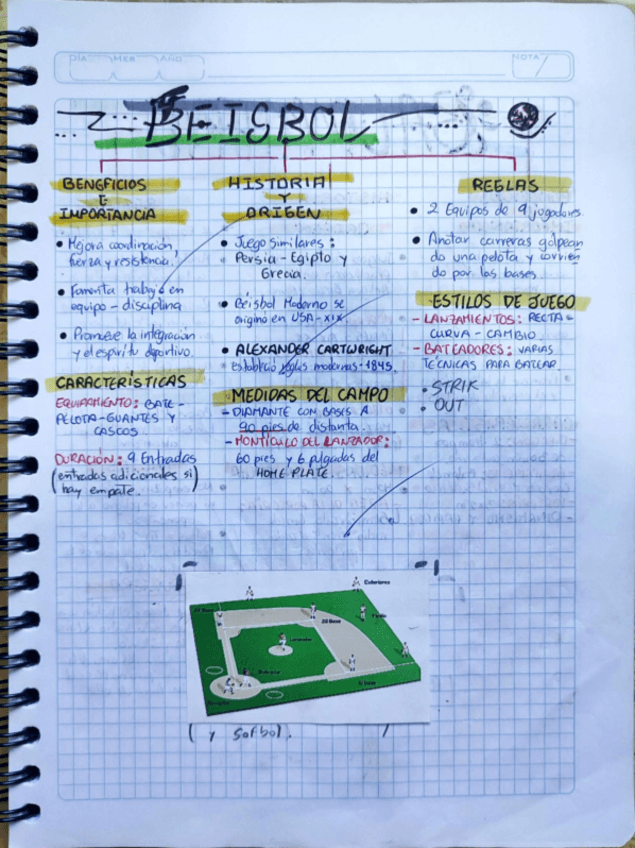 DÍA MER AÑO
NOTA
BEISBOL
BENEFICIOS
E
IMPORTANCIA
• Mejora coordinación,
fuerza y resistencia.
• Fomenta trabajo en
equipo - disciplina
• Promueve la integración
y el espíritu deportivo.
CARACTERÍSTICAS
EQUIPAMIENTO: BATE -
PELOTA - GUANTES Y
CASCOS
DURACIÓN: 9 Entradas
(entradas adicionales si)
hay empate.
HISTORIA
Y
ORIGEN
• Juego Similares:
Persia - Egipto y
Grecia.
• Béisbol Moderno se
originó en USA - XIX
• ALEXANDER CARTWRIGHT
estableció reglas modernas - 1845.
MEDIDAS DEL CAMPO
- DIAMANTE CON BASES A
90 pies de distanta.
- MONTÍCULO DEL LANZADOR:
60 pies y 6 pulgadas del
HOME PLATE.
REGLAS
• 2 Equipos de 9 jogadores.
• Anotar carreras golpean
do una pelota y corrien
do por las bases.
ESTILOS DE JUEGO
- LANZAMIENTOS: RECTA -
CURVA - CAMBIO.
- BATEADORES: VARIAS
TÉCNICAS PARA BATEAR.
• STRIK
• OUT
Exteriores
2ª Base
Lanzador
1ª Base
( y Sofbol. )